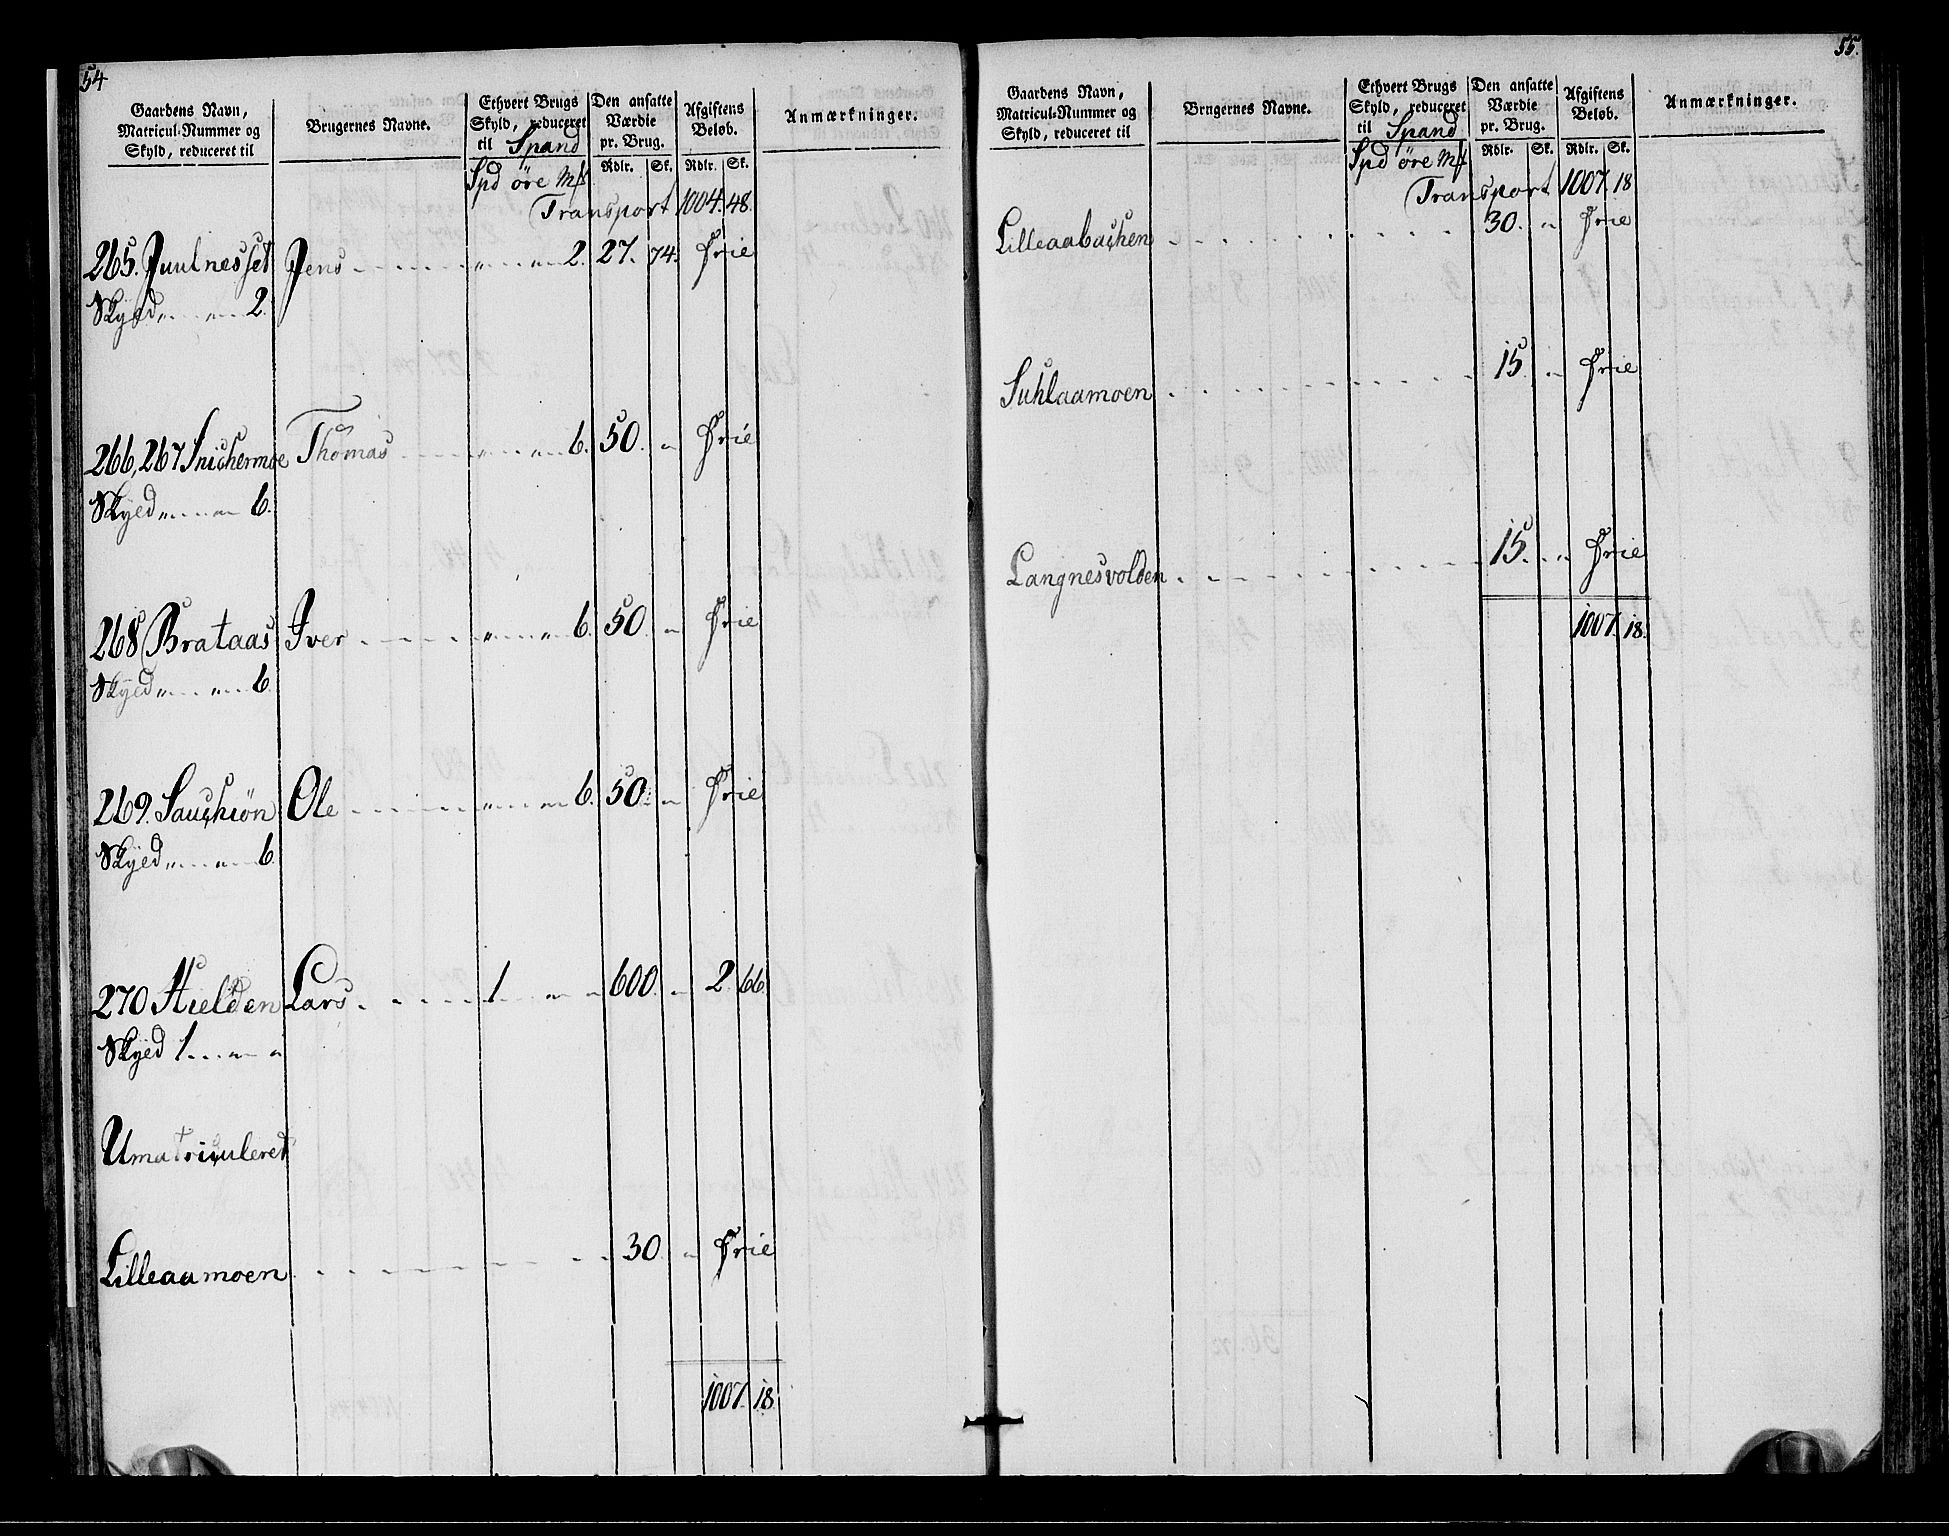 54
Gaardens Navn, Matricul-Nummer og Skyld, reduceret til
Brugernes Navne.
Ethvert Brugs Skyld, reduceret til Spand
Den ansatte Værdie pr. Brug.
Afgiftens Beløb.
Anmærkninger.
Spd øre Mk
Rdlr. Sk. Rdlr. Sk.
Transport 1004. 48.
265. Juulnesset Jens " " 2. 27. 74. Frie
Skyld " " 2.
266, 267 Snichermoe Thomas " " 6. 50. " Frie
Skyld " " 6.
268 Brataas Iver " " 6. 50. " Frie
Skyld " " 6.
269. Sauchiøn Ole " " 6. 50. " Frie
Skyld " " 6.
270 Hielden Lars 1 " " 600. " 2. 66.
Skyld 1 " "
Umatriculeret
Lilleaamoen 30. " Frie
1007. 18.
55.
Gaardens Navn, Matricul-Nummer og Skyld, reduceret til
Brugernes Navne.
Ethvert Brugs Skyld, reduceret til Spand
Den ansatte Værdie pr. Brug.
Afgiftens Beløb.
Anmærkninger.
Spd øre Mk
Rdlr. Sk. Rdlr. Sk.
Transport 1007. 18
Lilleaabachen 30. " Frie
Suhlaamoen 15. " Frie
Langnesvolden 15. " Frie
1007. 18.